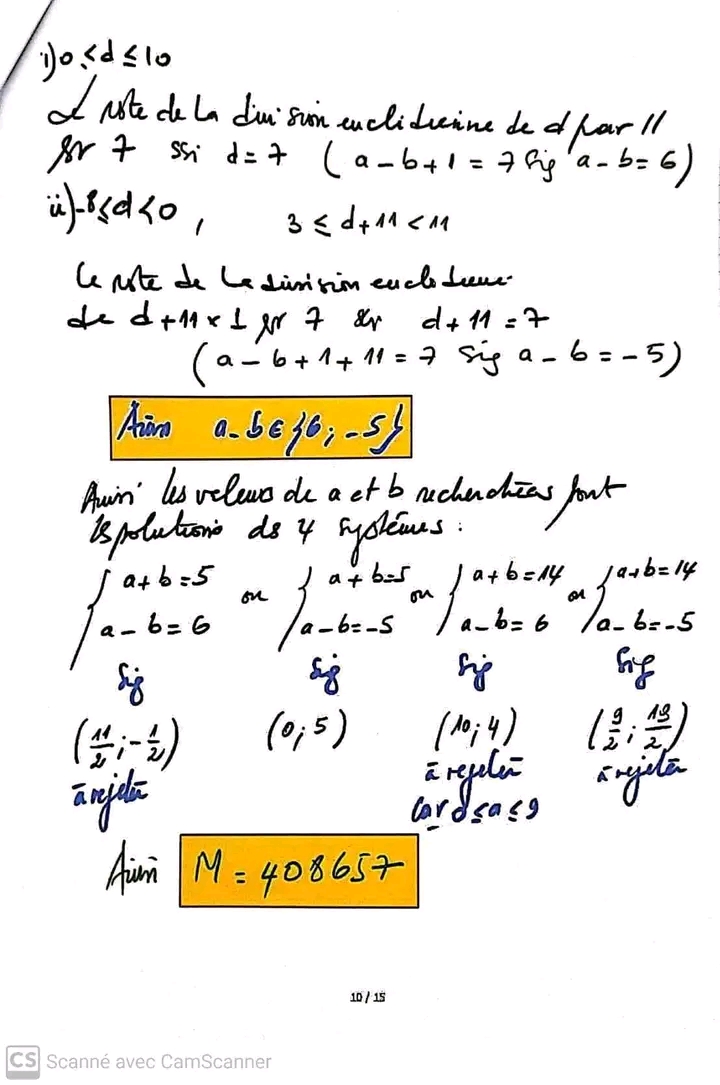 i) 0 ≤ d ≤ 10
reste de la division euclidienne de d par 11
est 7 ssi d = 7 ( a - b + 1 = 7 Sig a - b = 6 )
ii) -8 ≤ d < 0 , 3 ≤ d + 11 < 11
le reste de la division euclidienne
de d + 11 × 1 est 7 d + 11 = 7
( a - b + 1 + 11 = 7 Sig a - b = -5 )
Ainsi a - b ∈ {6 ; -5}
Ainsi les valeurs de a et b recherchées sont
les solutions ds 4 systèmes :
{ a + b = 5 ou { a + b = 5 ou { a + b = 14 ou { a + b = 14
a - b = 6 a - b = -5 a - b = 6 a - b = -5
Sig Sig Sig Sig
(11/2 ; -1/2) (0 ; 5) (10 ; 4) (9/2 ; 19/2)
à rejeter à rejeter à rejeter
car 0 ≤ a ≤ 9
Ainsi M = 408657
10 / 15
CS Scanné avec CamScanner